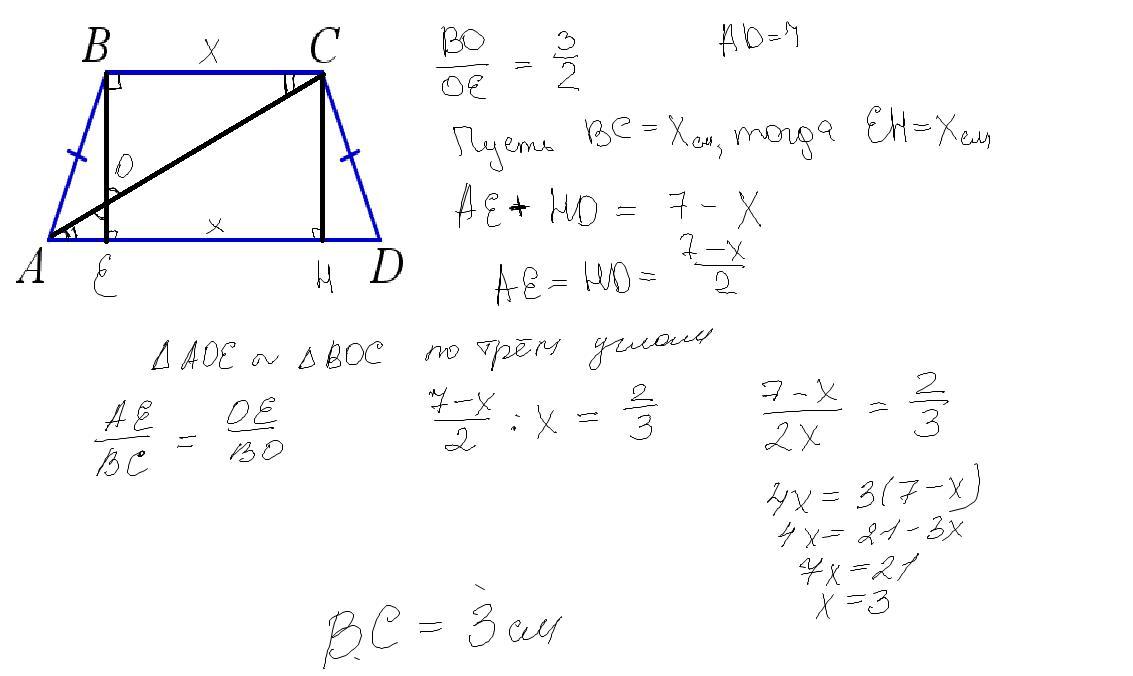 B x C
BO/OE = 3/2 AD=7
Пусть BC=Xсм, тогда EH=Xсм
O
AE+HD = 7-X
x
A E H D
AE=HD= 7-x/2
△AOE ~ △BOC по трём углам
AE/BC = OE/BO 7-x/2 : x = 2/3 7-x/2x = 2/3
4x = 3(7-x)
4x= 21-3x
7x=21
x=3
BC = 3 см